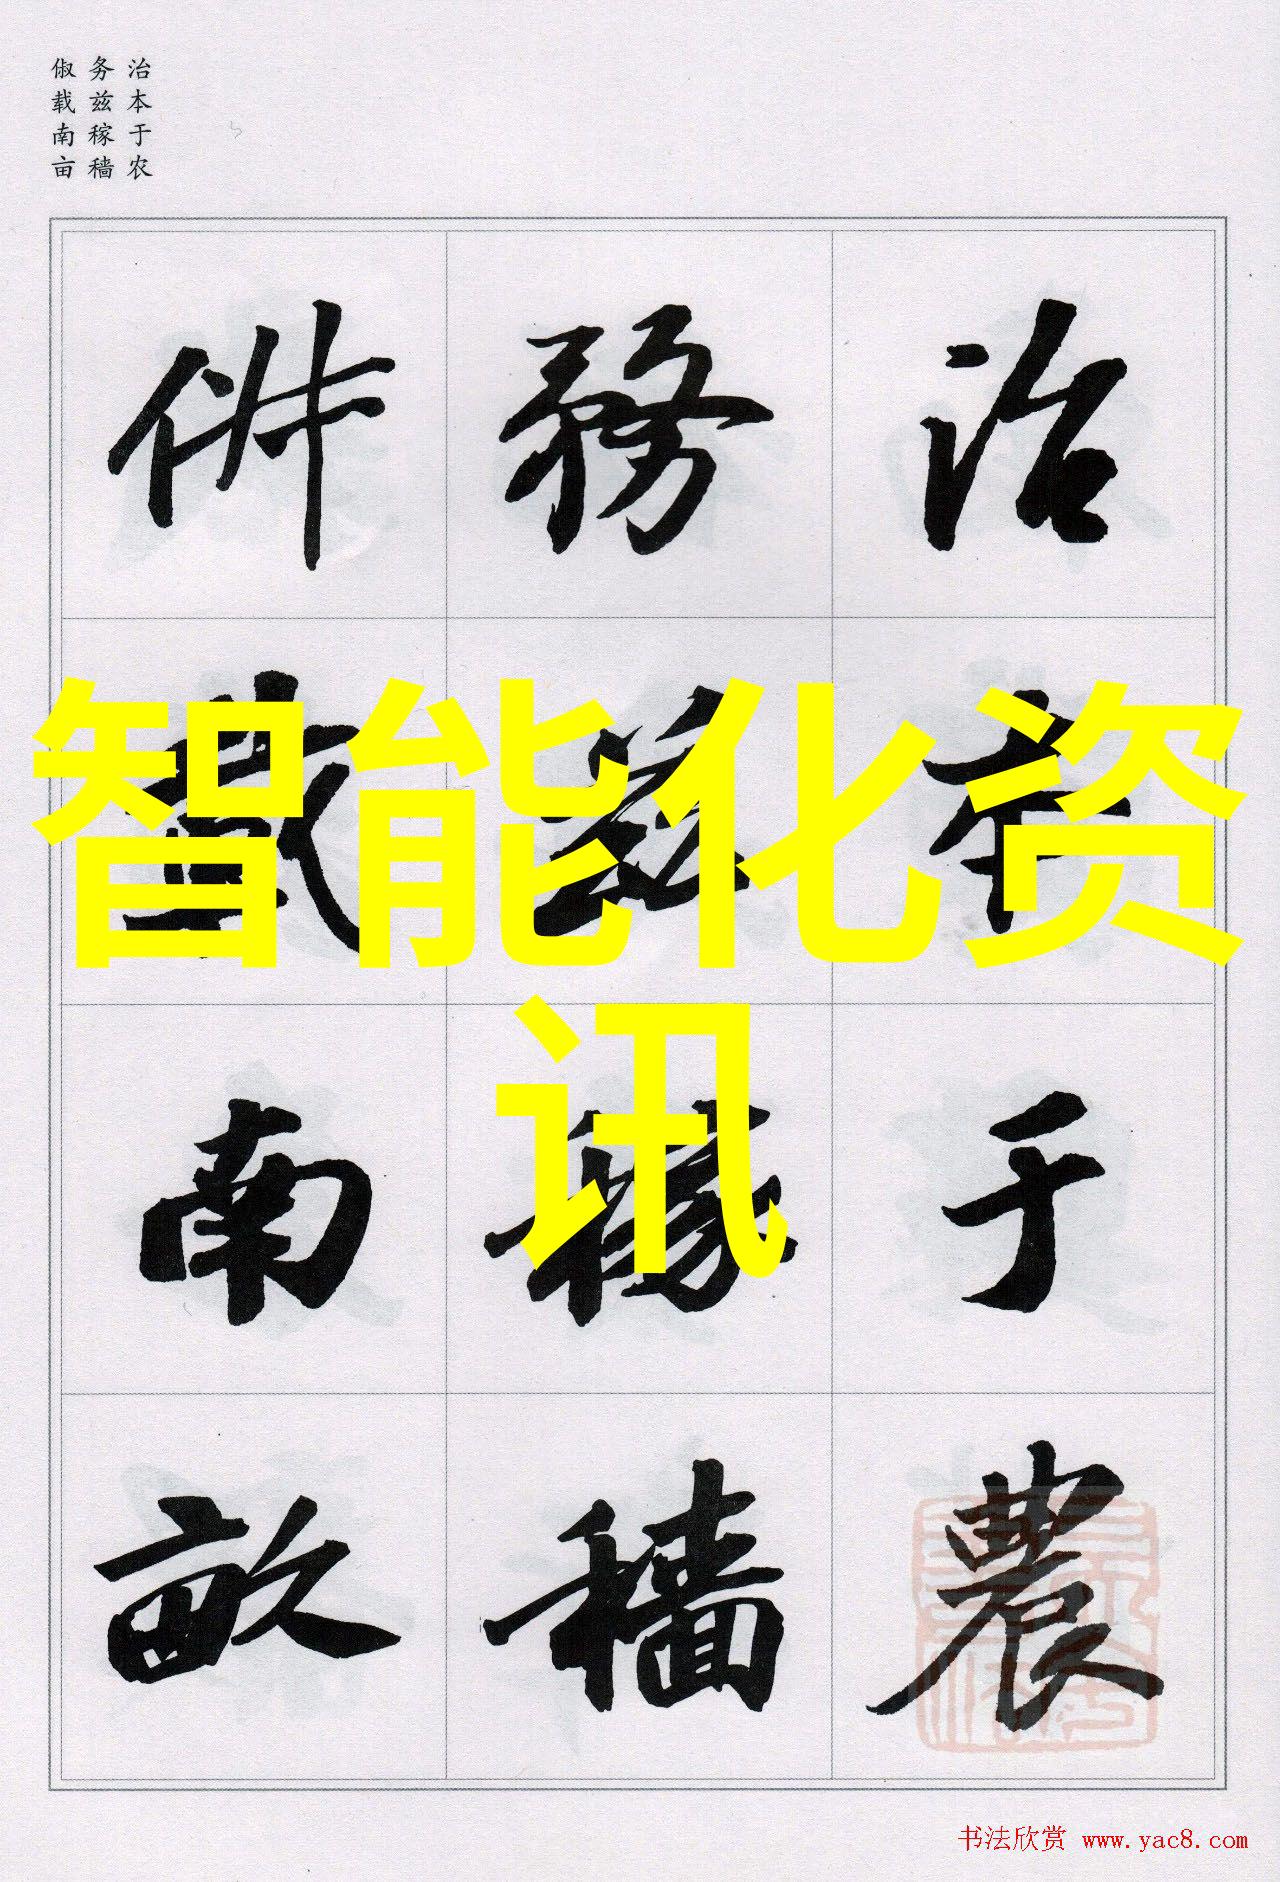 治本于农
务兹稼穑
俶载南亩
治本于農
務兹稼穡
俶載南畝
智能化资
讯
书法欣赏 www.yac8.com